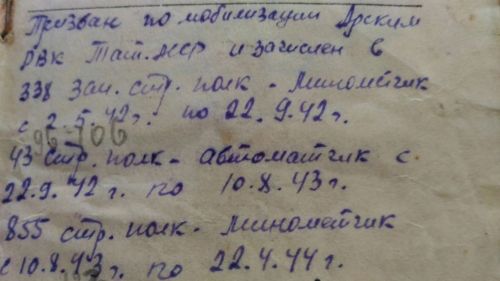 Призван по мобилизации Арским
РВК Тат. АССР и зачислен в
338 зап. стр. полк - Минометчик
с 2.5.42 г. по 22.9.42 г.
43 стр. полк - автоматчик с
22.9.42 г. по 10.8.43 г.
855 стр. полк - Минометчик
с 10.8.43 г. по 22.4.44 г.